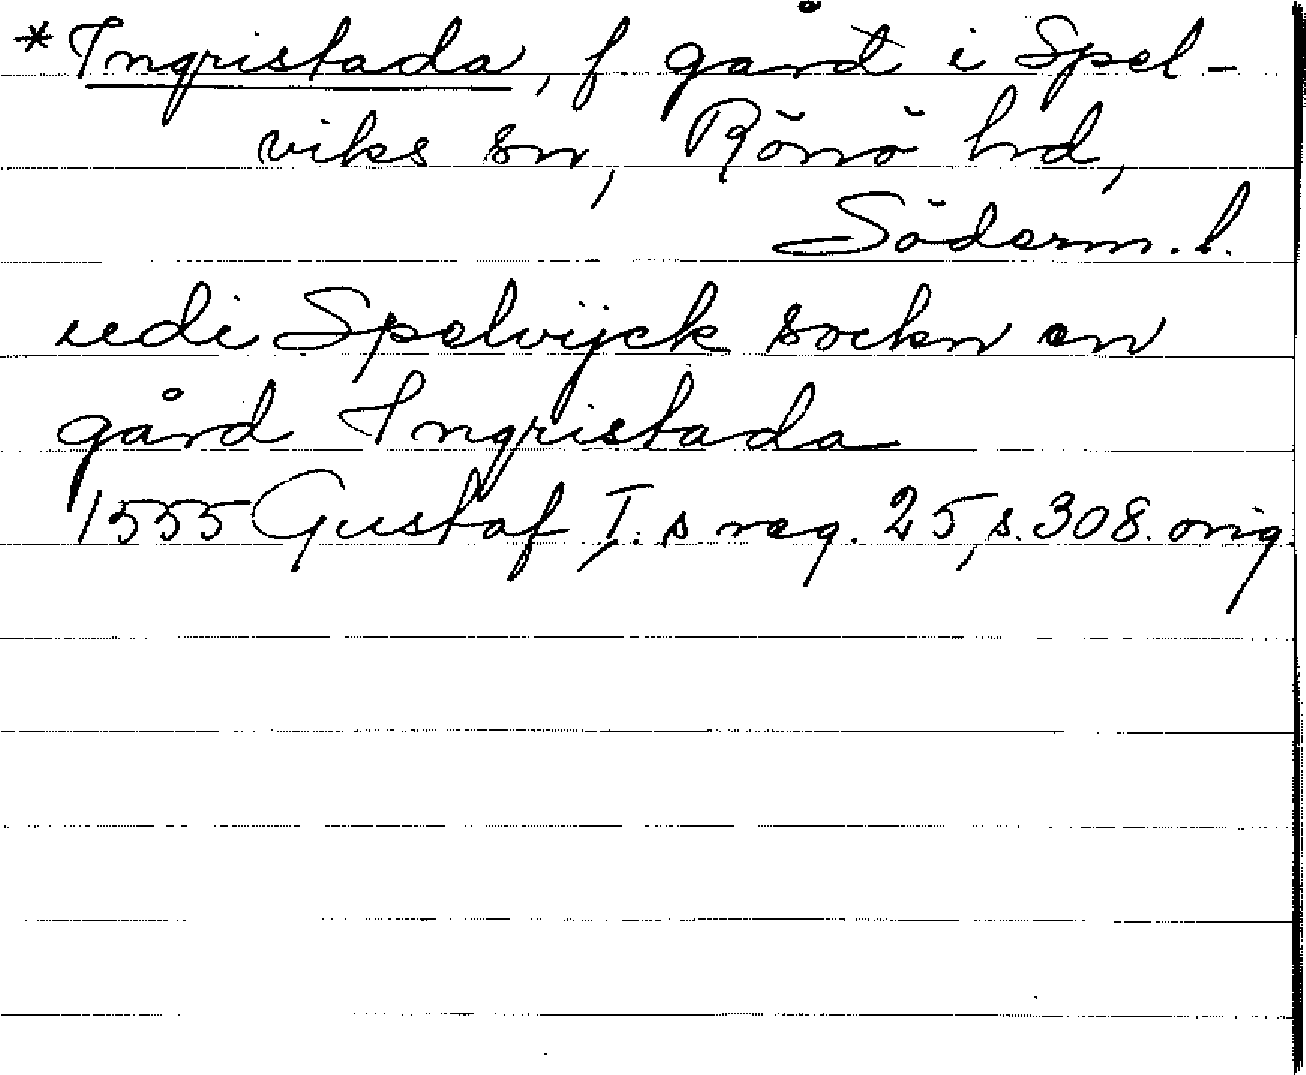 *Ingristada, f gård i Spel-
viks sn, Rönö hd,
Söderm. l.
udi Spelvijck sockn en
gård Ingristada
1555 Gustaf I:s reg. 25, s. 308. orig.